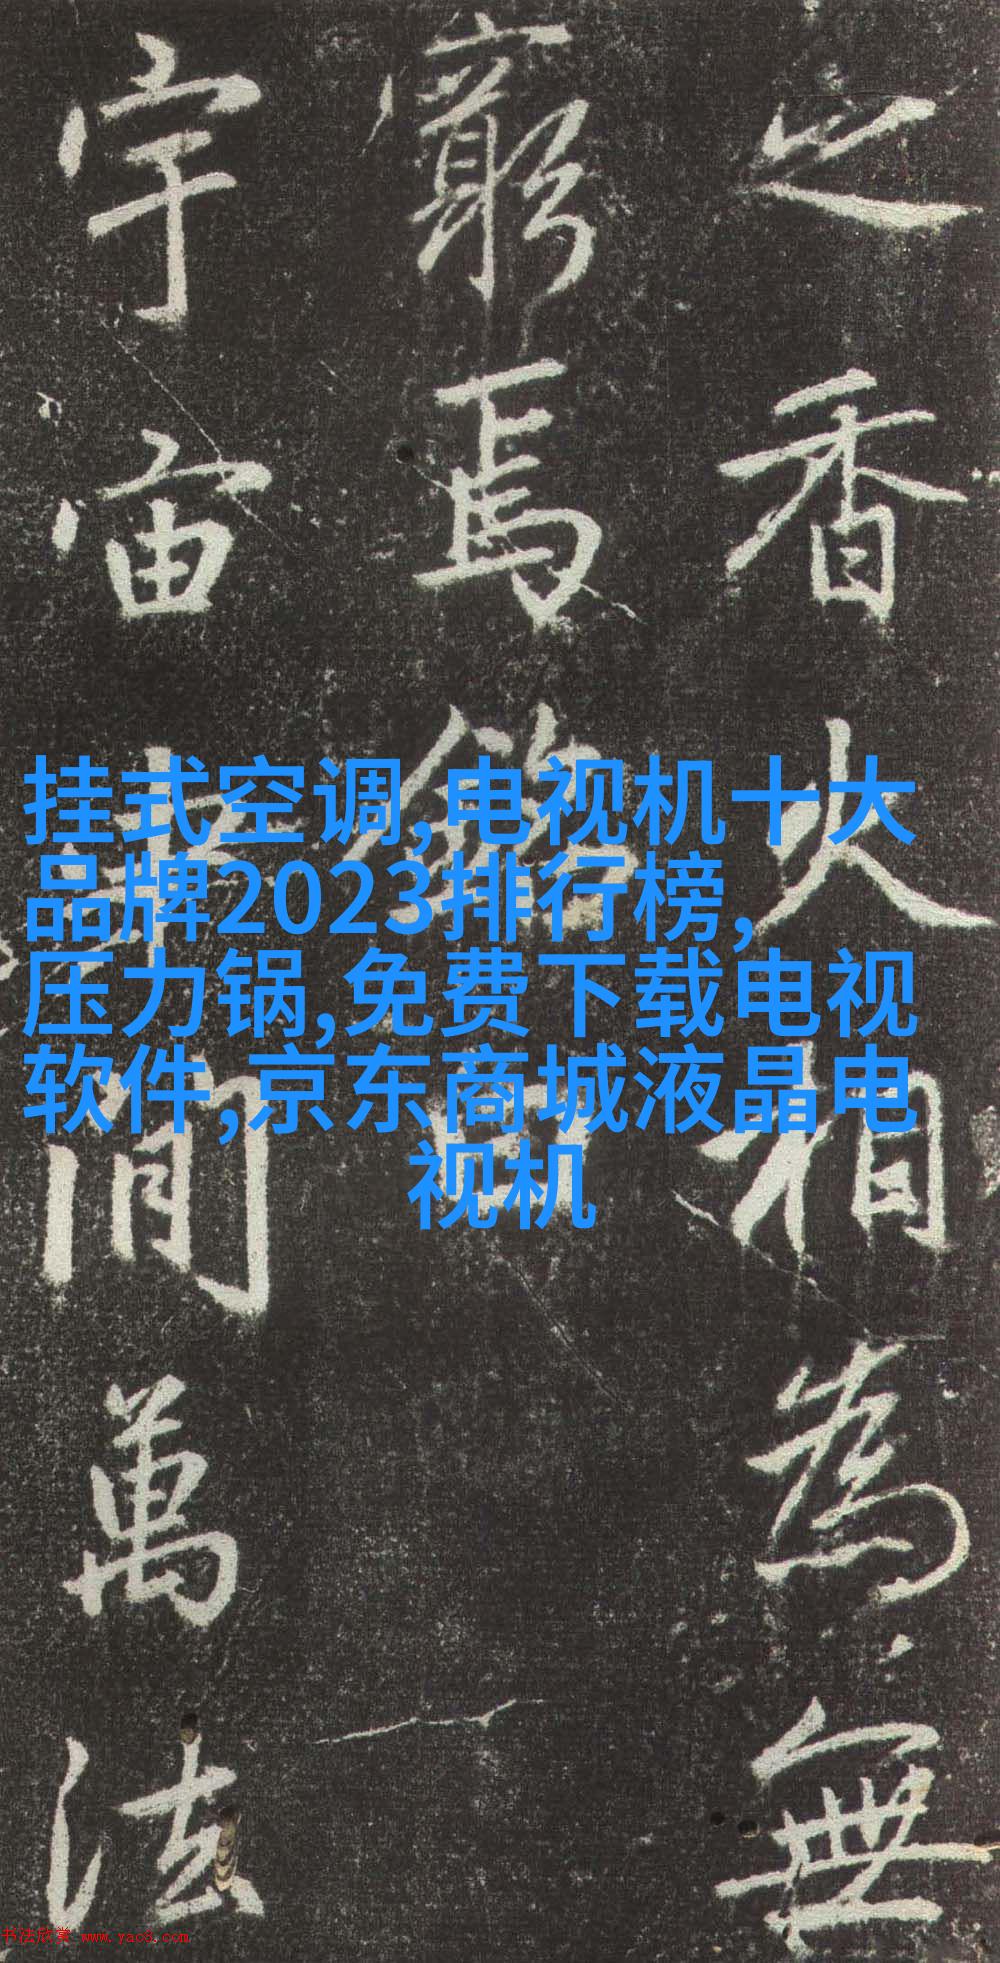 之香火相為無
窮焉銘曰
宇宙間萬法
挂式空调,电视机十大
品牌2023排行榜,
压力锅,免费下载电视
软件,京东商城液晶电
视机
书法欣赏 www.yac8.com